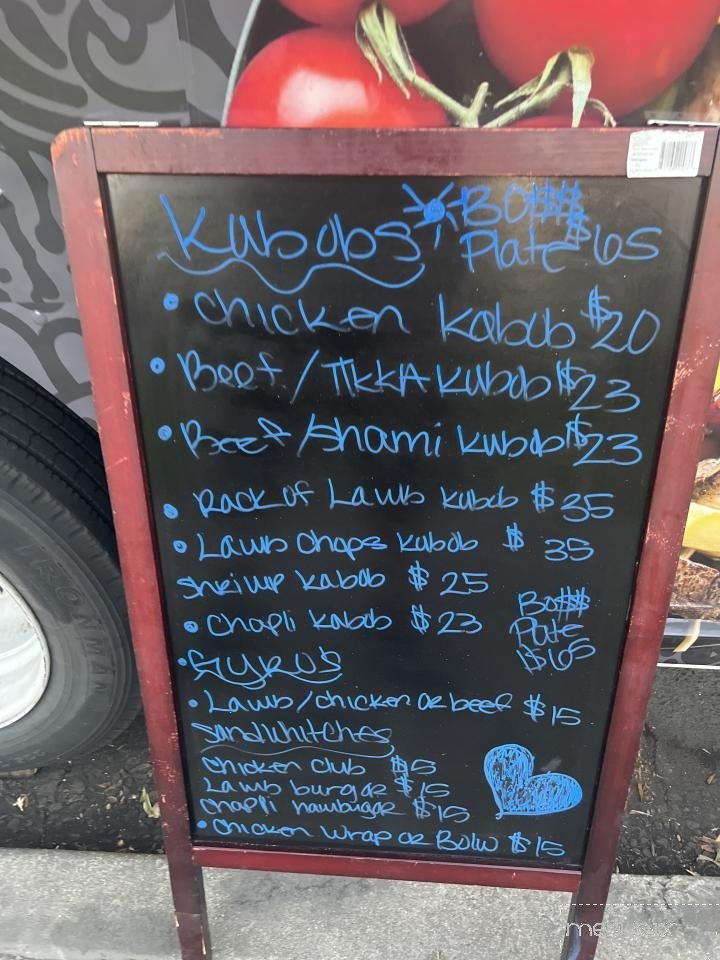 Kubobs BO$$$
Plate $65
• chicken kabob $20
• Beef / TIKKA KUbob $23
• Beef / shami kubob $23
• Rack of Lamb kubob $35
• Lamb Chops kubob $ 35
shrimp kabob $25
• chapli kabob $23
Bo$$$
Plate
$65
• Gyro's
• Lamb / chicken or beef $15
Sandwhitches
chicken club $15
Lamb burgar $15
chapli hamburgar $15
• chicken wrap or Bolw $15
IRONMAN